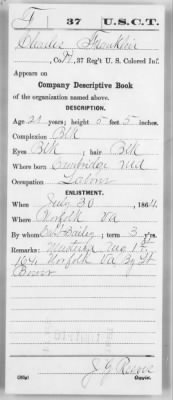 F 37 U.S.C.T.
Charles Franklin
Co. F, 37 Reg't U. S. Colored Inf.
Appears on
Company Descriptive Book
of the organization named above.
DESCRIPTION.
Age 21 years; height 5 feet 5 inches.
Complexion Blk
Eyes Blk; hair Blk
Where born Cambridge Md
Occupation Labor
ENLISTMENT.
When July 30, 1864.
Where Norfolk Va
By whom Bailey; term 3 y'rs.
Remarks: Mustered Aug 1st
1864 Norfolk Va By Lt
Copyist.